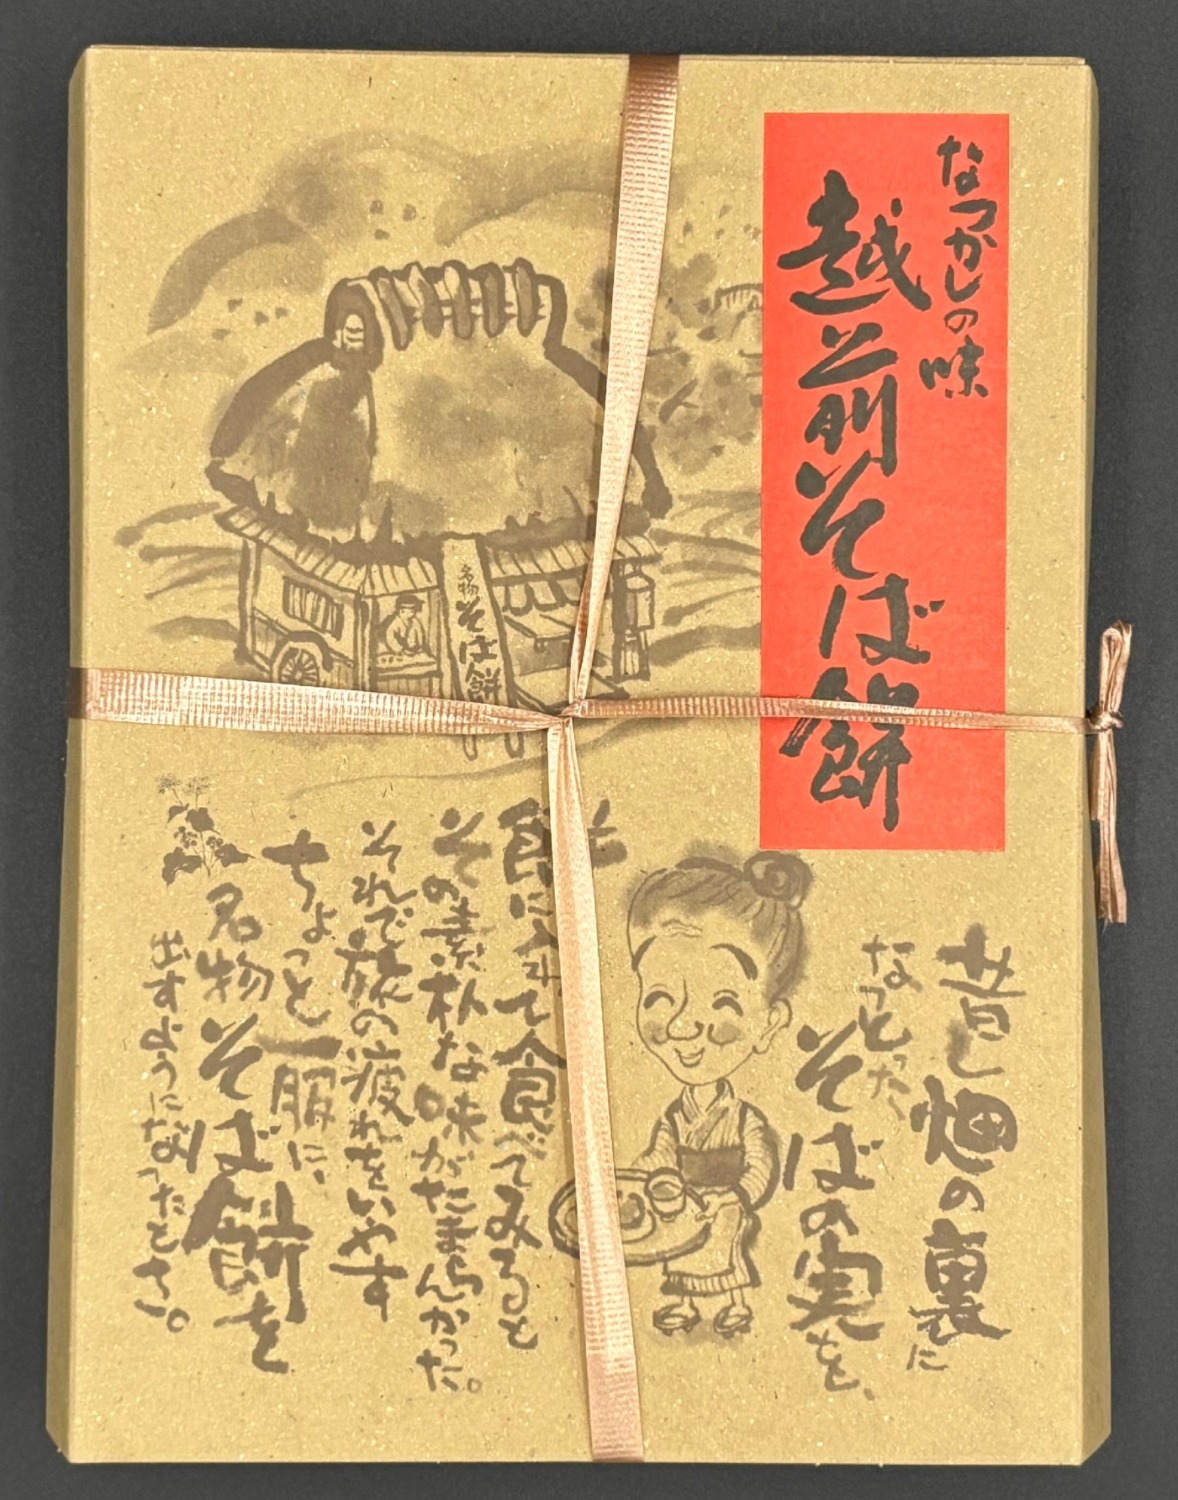 なつかしの味
越前そば餅
名物そば餅
昔し畑の裏に
なっとった
そばの実を、
餅に入れて食べてみると
その素朴な味がたまらんかった。
それで旅の疲れをいやす
ちょっと一服に、
名物そば餅を
出すようになったとさ。